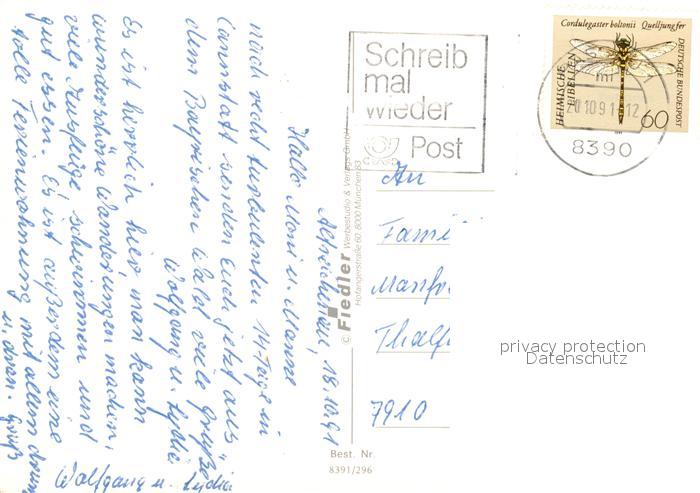 Altreichenau, 18.10.91
Hallo Moni u. Manne
nach recht turbulenten 14 Tage in
Cannstatt senden Euch jetzt aus
dem Bayrischen Wald viele Grüße
Wolfgang u. Lydia
Es ist herrlich hier man kann
wunderschöne Wanderungen machen,
viele Ausflüge schwimmen und
gut essen. Es ist außerdem eine
tolle Ferienwohnung mit allem drum
u. dran. Gruß
Wolfgang u. Lydia
© Fiedler Werbestudio & Verlags GmbH
Hofangerstraße 60 8000 München 83
Best. Nr.
8391/296
Schreib
mal
wieder
Post
Cordulegaster boltonii Quelljungfer
HEIMISCHE
LIBELLEN
DEUTSCHE BUNDESPOST
60
20.10.91-12
8390
An
Fami
Manfr
Thalf
7910
privacy protection
Datenschutz